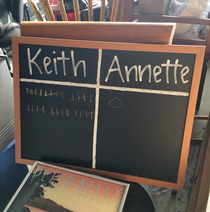 Keith Annette